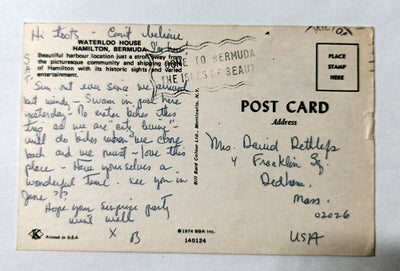 Hi toots - Can't believe
I'm here
WATERLOO HOUSE
HAMILTON, BERMUDA
Beautiful harbour location just a stroll away from
the picturesque community and shipping
of Hamilton with its historic sights and varied
entertainment.
COME TO BERMUDA
THE ISLES OF BEAUTY
Sun out ever since we arrived
but windy - Swam in pool here
yesterday - No motor bikes this
trip as we are city living -
will do bikes when we come
back and we must - love this
place - Have yourselves a
wonderful time - see you in
June ??
Hope your surprise party
went well
X B
Printed in U.S.A.
© 1974 BBA Inc.
140124
Bill Bard Colour Ltd., Monticello, N.Y.
PLACE
STAMP
HERE
POST CARD
Address
Mrs. David
4 Franklin Sq.
Dedham,
Mass.
02026
USA